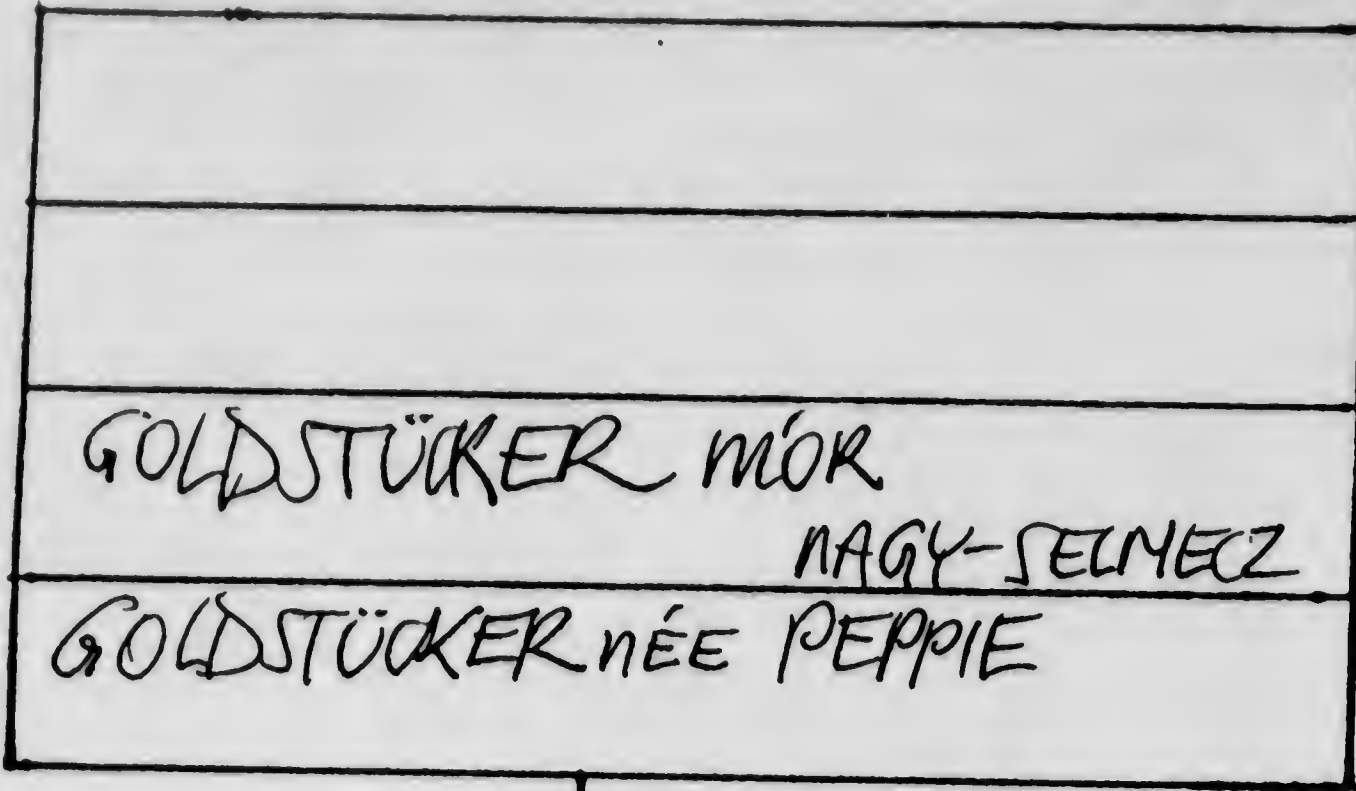 GOLDSTÜCKER MÓR
NAGY-SELMECZ
GOLDSTÜCKER NÉE PEPPIE